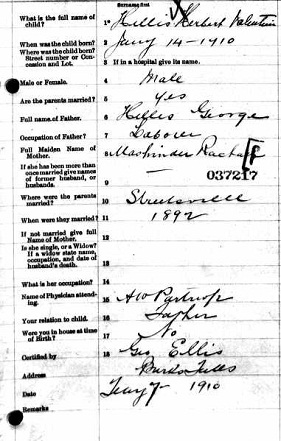 Surname first
What is the full name of child? 1 Hillis Herbert Valentine
When was the child born? 2 Jany 14 - 1910
Where was the child born? Street number or Concession and Lot. 3 If in a hospital give its name.
Male or Female. 4 Male
Are the parents married? 5 yes
Full name of Father. 6 Hillis George
Occupation of Father? 7 Laborer
Full Maiden Name of Mother. 8
If she has been more than once married give names of former husband, or husbands. 9 —
037217
Where were the parents married? 10 Streetsville
When were they married? 11 1892
If not married give full Name of Mother. 12
Is she single, or a Widow? If a widow state name, occupation, and date of husband's death. 13
What is her occupation? 14
Name of Physician attending. 15 A W Partridge
Your relation to child. 16 Father
Were you in house at time of Birth? 17 No
Certified by 18 Geo Ellis
Address Burks Falls
Date 1910
Remarks